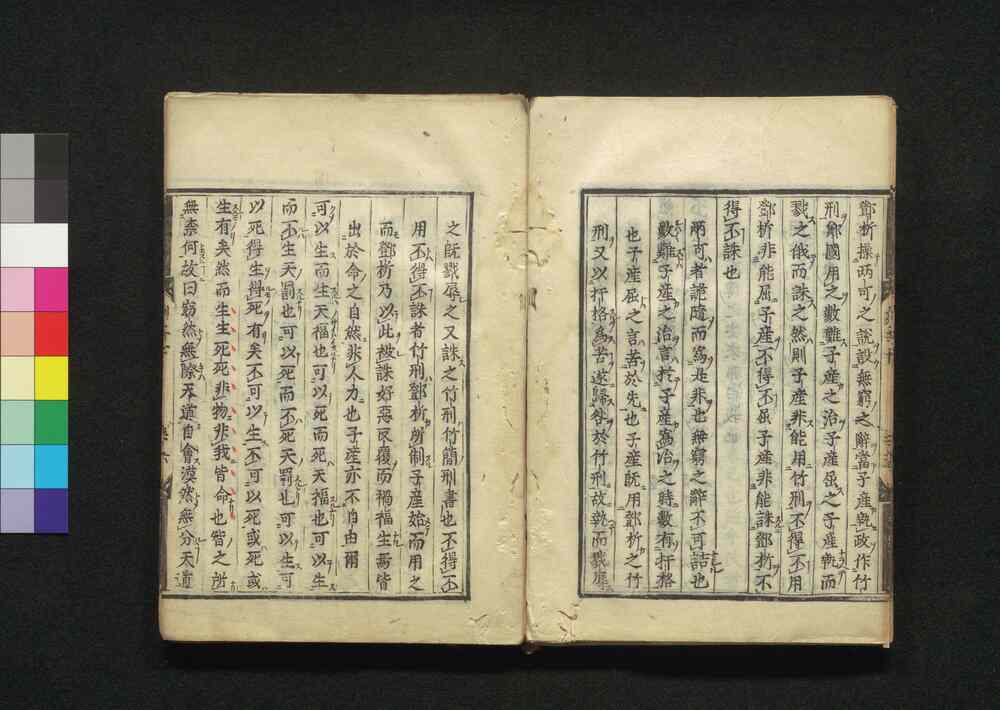 鄧析操兩可之說設無窮之辭當子產執政作竹
刑鄭國用之數難子產之治子產屈之子產執而
戮之俄而誅之然則子產非能用竹刑不得不用
鄧析非能屈子產不得不屈子產非能誅鄧析不
得不誅也
兩可者詭隨而爲是非也無窮之辭不可詰也
數難子產之治言於子產爲治之時數有扞格
也子產屈之言苦於先也子產既用鄧析之竹
刑又以扞格爲苦遂歸咎於竹刑故執而戮辱
之既戮辱之又誅之竹刑竹簡刑書也不得不
用不得不誅者竹刑鄧析所制子產始而用之
而鄧析乃以此被誅好惡反覆而禍福生焉皆
出於命之自然非人力也子產亦不自由爾
可以生而生天福也可以死而死天福也可以生
而不生天罰也可以死而不死天罰也可以生可
以死得生得死有矣不可以生不可以死或死或
生有矣然而生生死死非物非我皆命也智之所
無柰何故曰窈然無際天道自會漠然無分天道